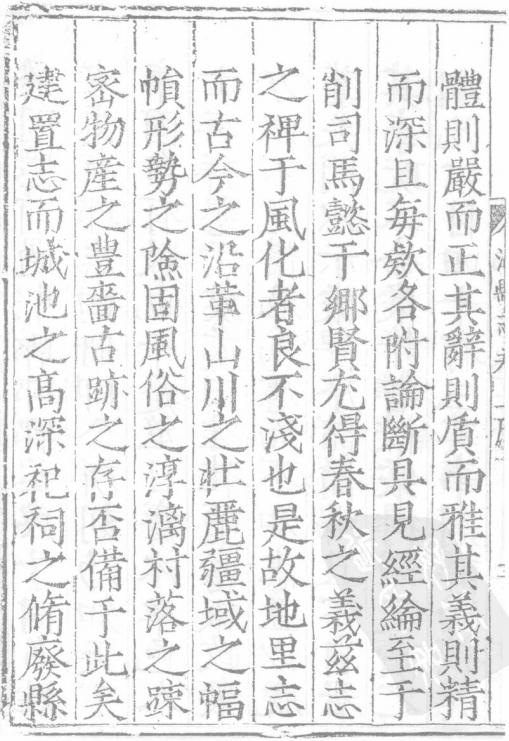 體則嚴而正其辭則質而雅其義則精
而深且每欵各附論斷具見經綸至于
削司馬懿于鄉賢尤得春秋之義兹志
之裨于風化者良不淺也是故地里志
而古今之沿革山川之壮麗疆域之幅
㡓形勢之隂固風俗之淳漓村落之踈
宻物產之豊嗇古跡之存否備于此矣
建置志而城池之髙深祀祠之脩廢縣